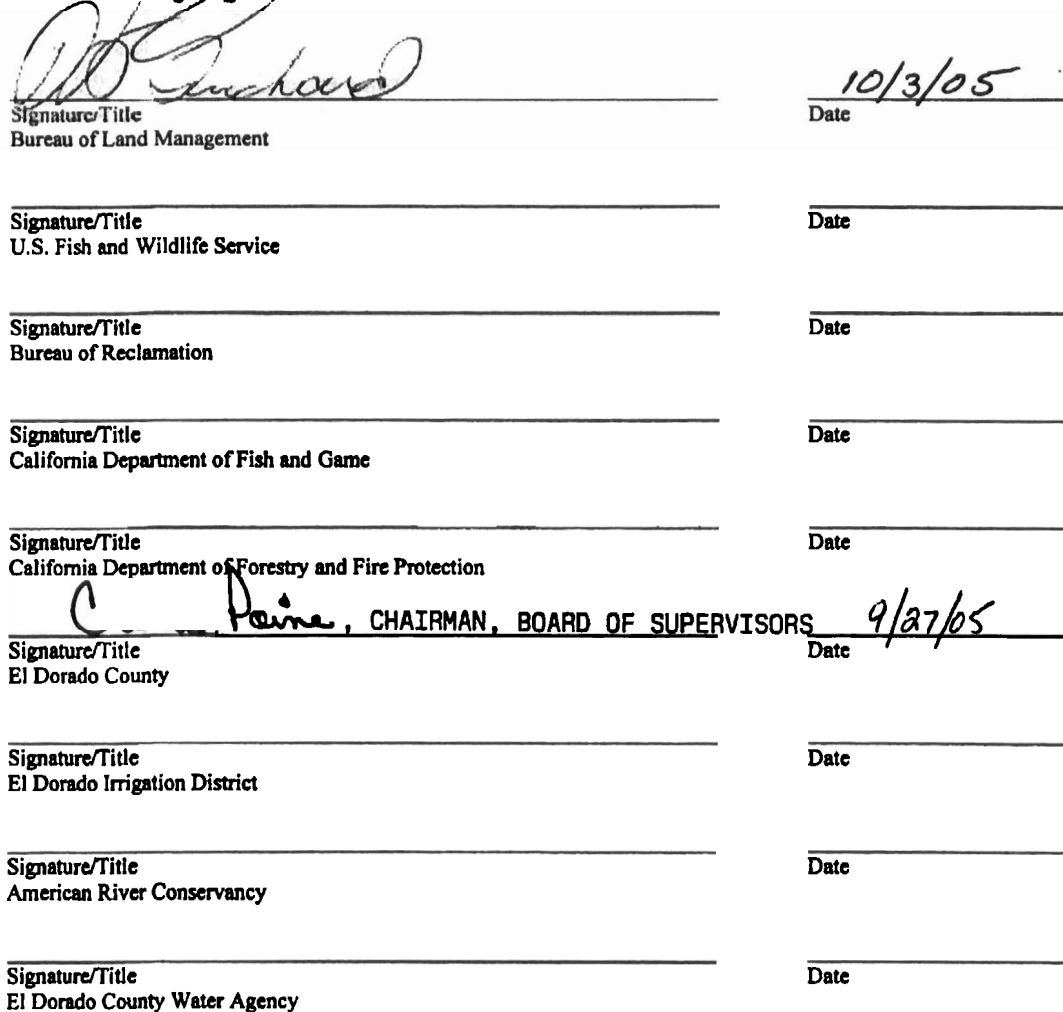 10/3/05
Signature/Title Date
Bureau of Land Management
Signature/Title Date
U.S. Fish and Wildlife Service
Signature/Title Date
Bureau of Reclamation
Signature/Title Date
California Department of Fish and Game
Signature/Title Date
California Department of Forestry and Fire Protection
Paine, CHAIRMAN, BOARD OF SUPERVISORS 9/27/05
Signature/Title Date
El Dorado County
Signature/Title Date
El Dorado Irrigation District
Signature/Title Date
American River Conservancy
Signature/Title Date
El Dorado County Water Agency